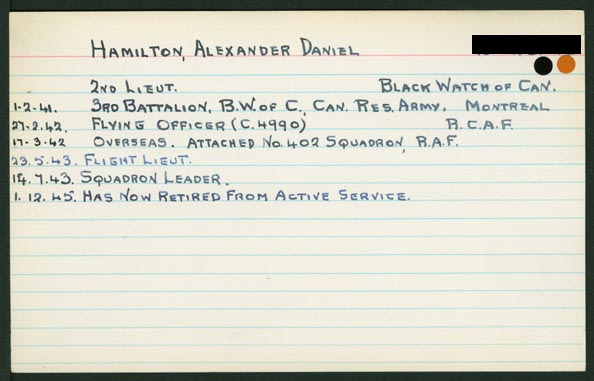 HAMILTON, ALEXANDER DANIEL
2ND LIEUT. BLACK WATCH OF CAN.
1-2-41. 3RD BATTALION, B.W. OF C., CAN. RES. ARMY. MONTREAL
27-2-42. FLYING OFFICER (C.4990) R.C.A.F.
17-3-42 OVERSEAS. ATTACHED NO. 402 SQUADRON, R.A.F.
23.5.43. FLIGHT LIEUT.
14.7.43. SQUADRON LEADER.
1.12.45. HAS NOW RETIRED FROM ACTIVE SERVICE.